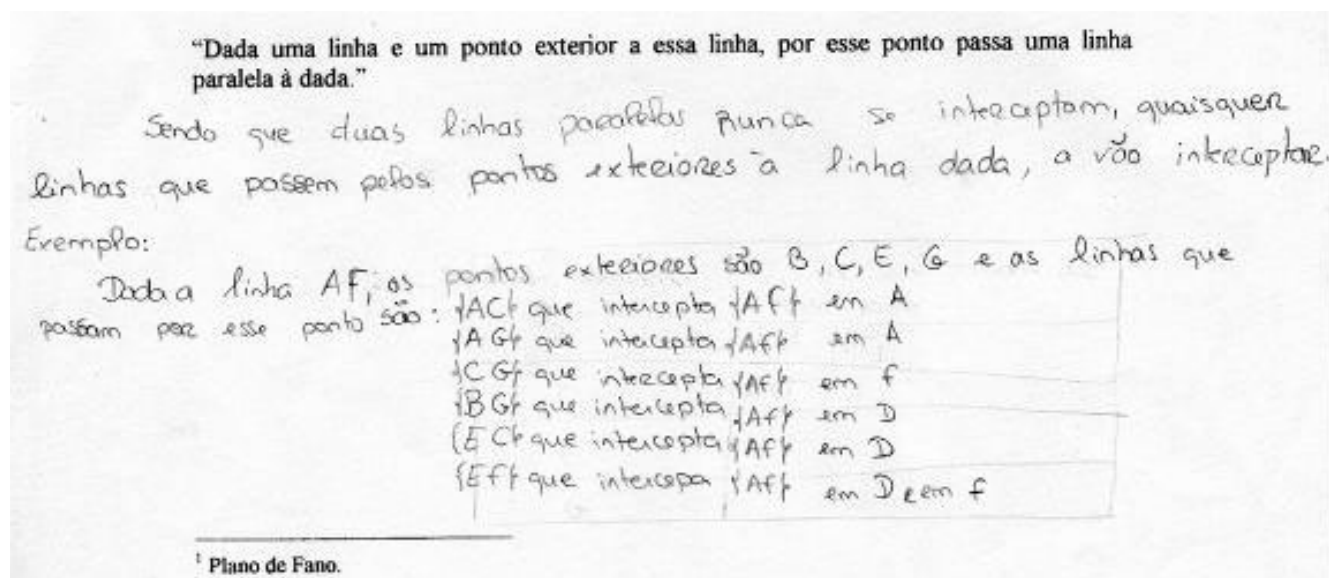 “Dada uma linha e um ponto exterior a essa linha, por esse ponto passa uma linha
paralela à dada.”
Sendo que duas linhas paralelas nunca se interceptam, quaisquer
linhas que passem pelos pontos exteriores à linha dada, a vão interceptar.
Exemplo:
Dada a linha AF, os pontos exteriores são B, C, E, G e as linhas que
passam por esse ponto são: {AC} que intercepta {AF} em A
{AG} que intercepta {AF} em A
{CG} que intercepta {AF} em F
{BG} que intercepta {AF} em D
{EC} que intercepta {AF} em D
{EF} que intercepa {AF} em D e em F
1 Plano de Fano.